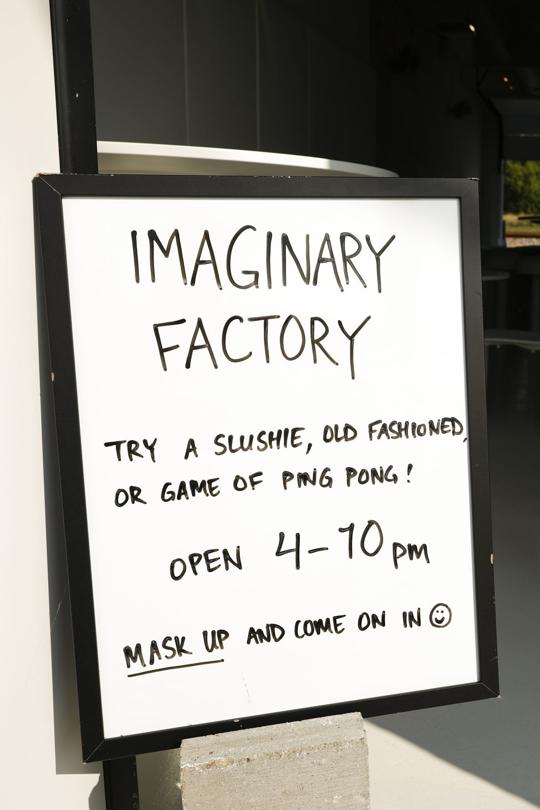 IMAGINARY
FACTORY
TRY A SLUSHIE, OLD FASHIONED,
OR GAME OF PING PONG!
OPEN 4-10 pm
MASK UP AND COME ON IN ☺